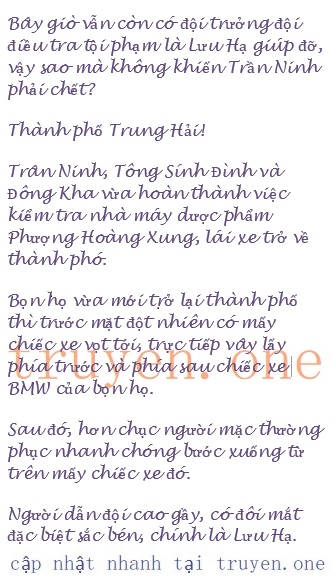 Bây giờ vẫn còn có đội trưởng đội
điều tra tội phạm là Lưu Hạ giúp đỡ,
vậy sao mà không khiến Trần Ninh
phải chết?
Thành phố Trung Hải!
Trân Ninh, Tông Sính Đình và
Đông Kha vừa hoàn thành việc
kiểm tra nhà máy dược phẩm
Phượng Hoàng Xung, lái xe trở về
thành phó.
Bọn họ vừa mới trở lại thành phố
thì trước mặt đột nhiên có mấy
chiếc xe vọt tới, trực tiếp vây lấy
truyen.one
phía trước và phía sau chiếc xe
BMW của bọn họ.
Sau đó, hơn chục người mặc thường
phục nhanh chóng bước xuống từ
trên mấy chiếc xe đó.
Người dẫn đội cao gầy, có đôi mắt
đặc biệt sắc bén, chính là Lưu Hạ.
cập nhật nhanh tại truyen.one